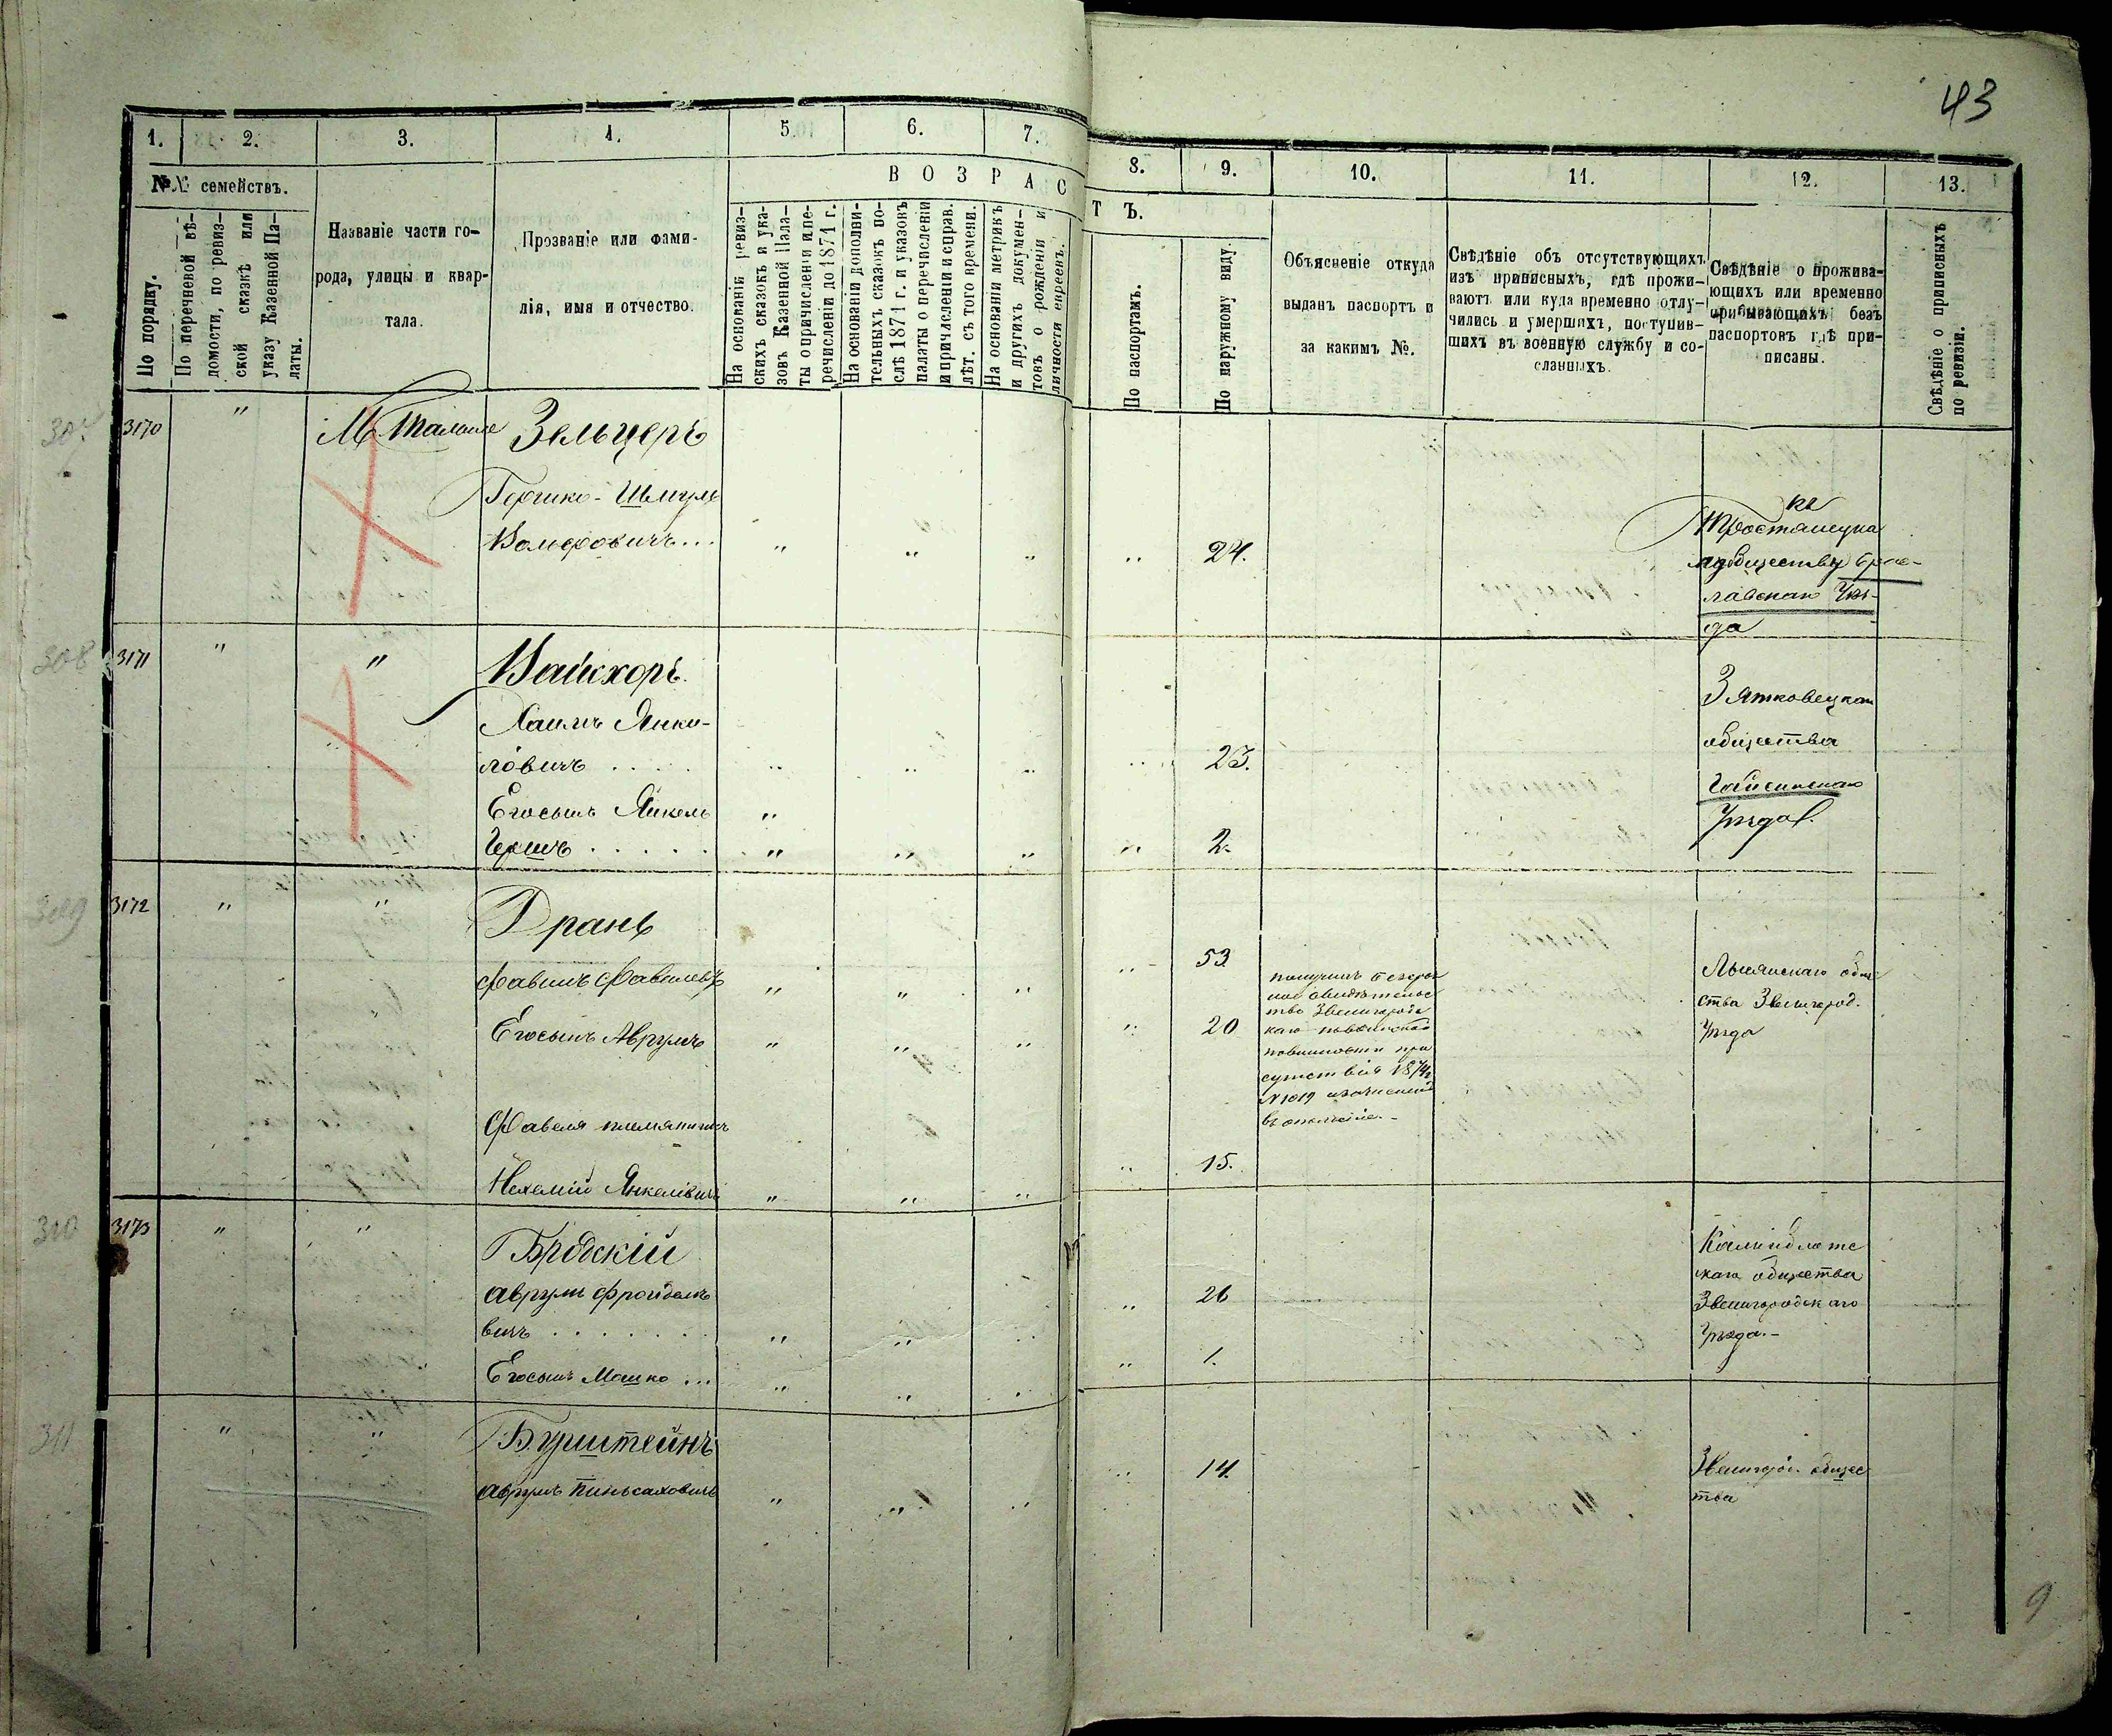 43
1. 2. 3. 4. 5. 6. 7. 8. 9. 10. 11. 12. 13.
№№ семействъ.
По порядку.
По перечневой вѣ-
домости, по ревиз-
ской сказкѣ или
указу Казенной Па-
латы.
Названіе части го-
рода, улицы и квар-
тала.
Прозваніе или фами-
лія, имя и отчество.
ВОЗРАСТЪ.
На основаніи ревиз-
скихъ сказокъ и ука-
зовъ Казенной Пала-
ты о причисленіи и пе-
речисленіи до 1871 г.
На основаніи дополни-
тельныхъ сказокъ по-
слѣ 1871 г. и указовъ
палаты о перечисленіи
и причисленіи и справ.
лѣт. съ того времени.
На основаніи метрикъ
и другихъ докумен-
товъ о рожденіи и
личности евреевъ.
По паспортамъ.
По наружному виду.
Объясненіе откуда
выданъ паспортъ и
за какимъ №.
Свѣдѣніе объ отсутствующихъ
изъ приписныхъ, гдѣ прожи-
ваютъ или куда временно отлу-
чились и умершихъ, поступив-
шихъ въ военную службу и со-
сланныхъ.
Свѣдѣніе о прожива-
ющихъ или временно
прибывающихъ безъ
паспортовъ гдѣ при-
писаны.
Свѣдѣніе о приписныхъ
по ревизіи.
307 3170 " М. Тальное Зельцеръ
Гершко-Шмуль
Вольфовичъ... " " " " 24.
къ
Тростянецко
му обществу Брац-
лавскаго Уѣз-
да
308 3171 " " Вайсхоръ
Хаимъ Янке-
левичъ . . . . " " " " 23.
Егосынъ Янкель "
Гершъ . . . . . " " " " 2.
Зятковецкаго
общества
Гайсинскаго
Уѣзда.
309 3172 " " Дрань
Фавишъ Фавелевъ " " " " 53
Егосынъ Аврумъ " " " " 20
Фавеля племянникъ
Нехемій Янкелевичъ " " " " 15.
получилъ безсроч
ное свидѣтельс
тво Звенигородс
каго по воинской
повинности при
сутствія 1874 г.
№ 1019 о зачисленіи
въ ополченіе.-
Лысянскаго обще
ства Звенигород.
Уѣзда
310 3173 " " Бродскій
Аврумъ Фройдале
вичъ . . . . . . . " " " " 26
Егосынъ Мошко ... " " " " 1.
Калниболотс
каго общества
Звенигородскаго
Уѣзда.-
311 " " Бурштейнъ
Аврумъ Пинхасовичъ " " " " 14.
Звенигород. общес
тва
9